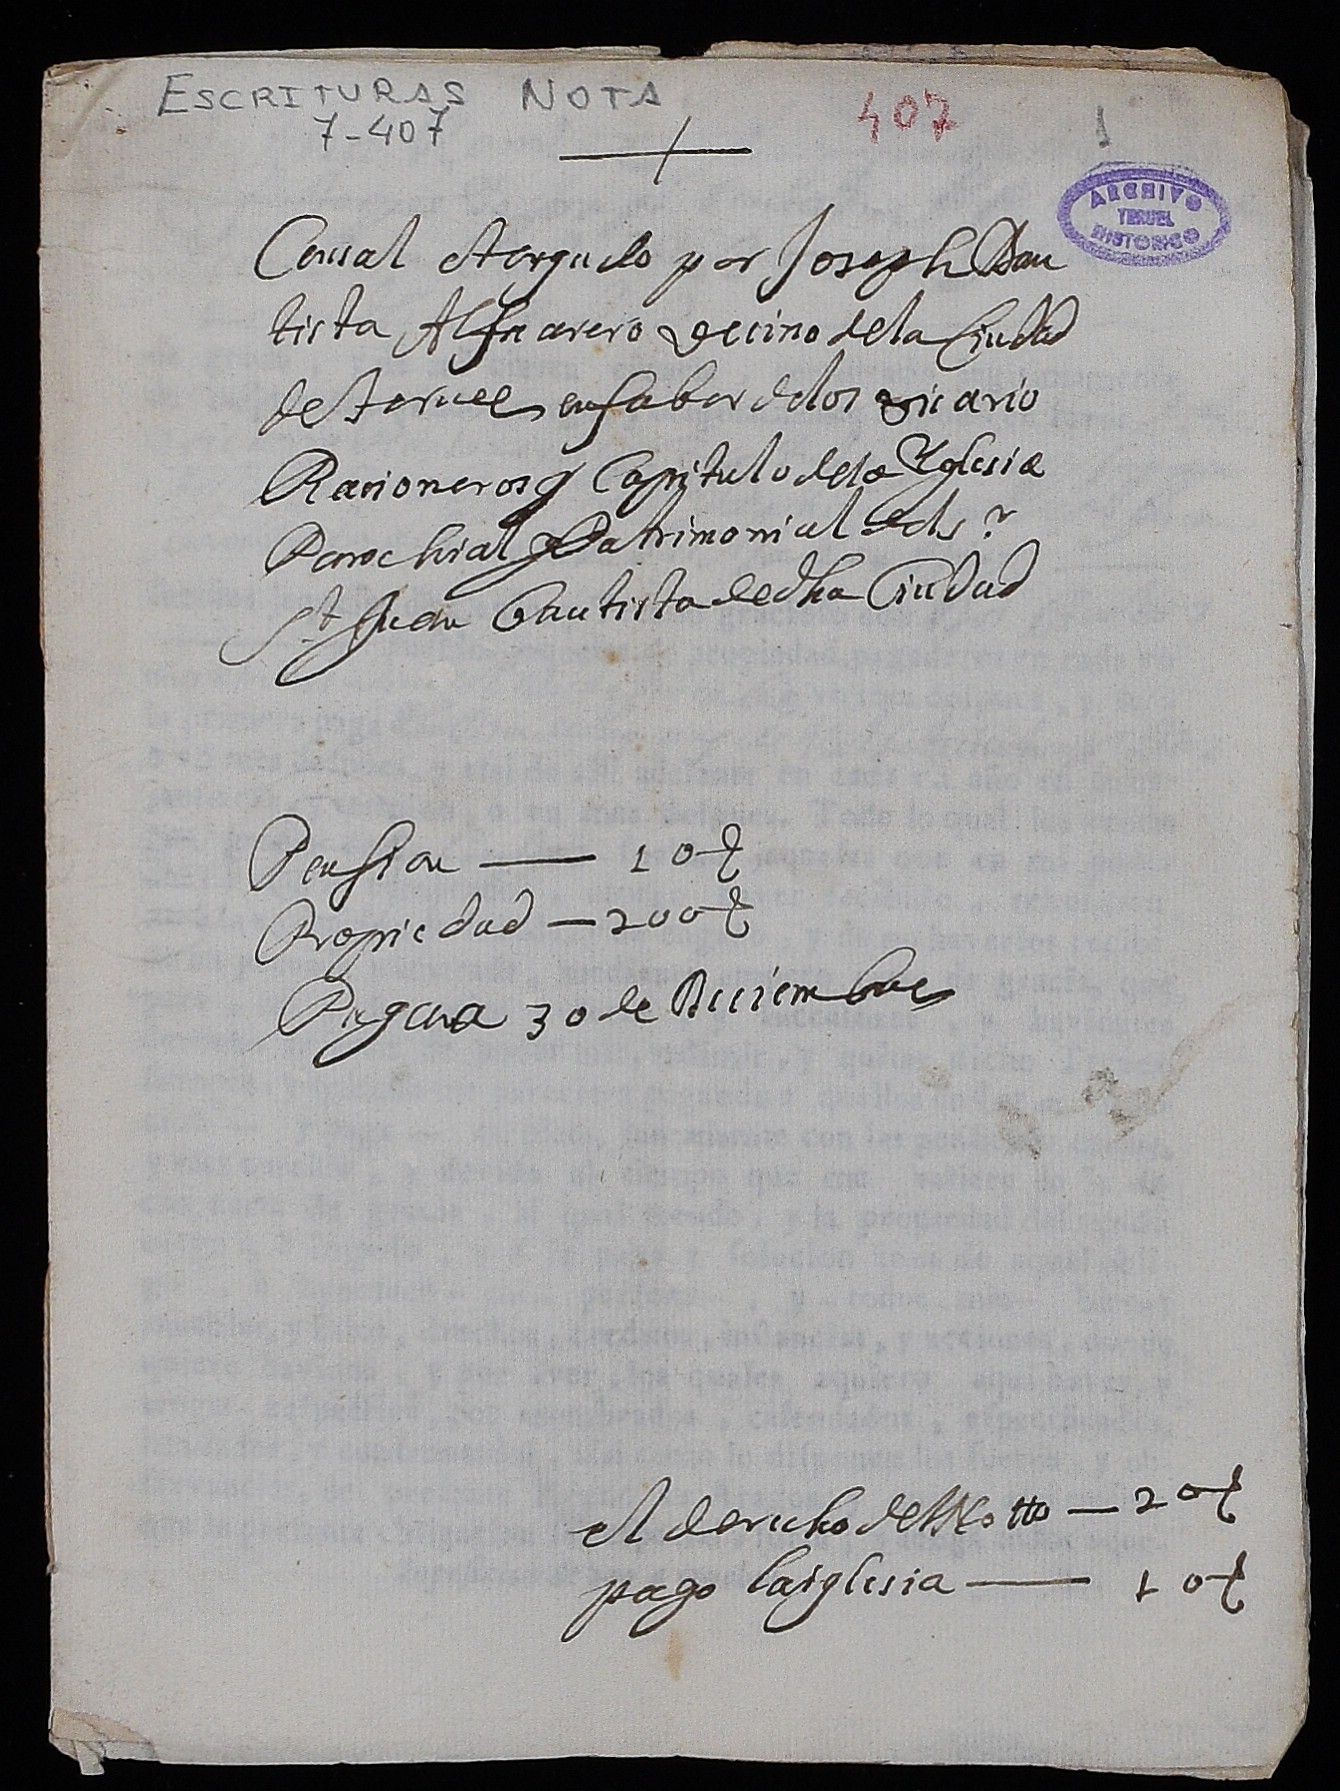 ESCRITURAS NOTA
7-407
407
1
ARCHIVO
TERUEL
HISTORICO
Censal otorgado por Joseph Bau
tista Alfaarero vecino de la Ciudad
de Teruel en fabor de los vicario
Racioneros y Capitulo de la Yglesia
Parochial y Patrimonial del s.r
S.t Juan Bautista de dha Ciudad
Pension — 10 ₶
Propiedad — 200 ₶
Pagara 30 de Diciembre
el derecho del Notto — 20 ₶
pago la iglesia — 10 ₶